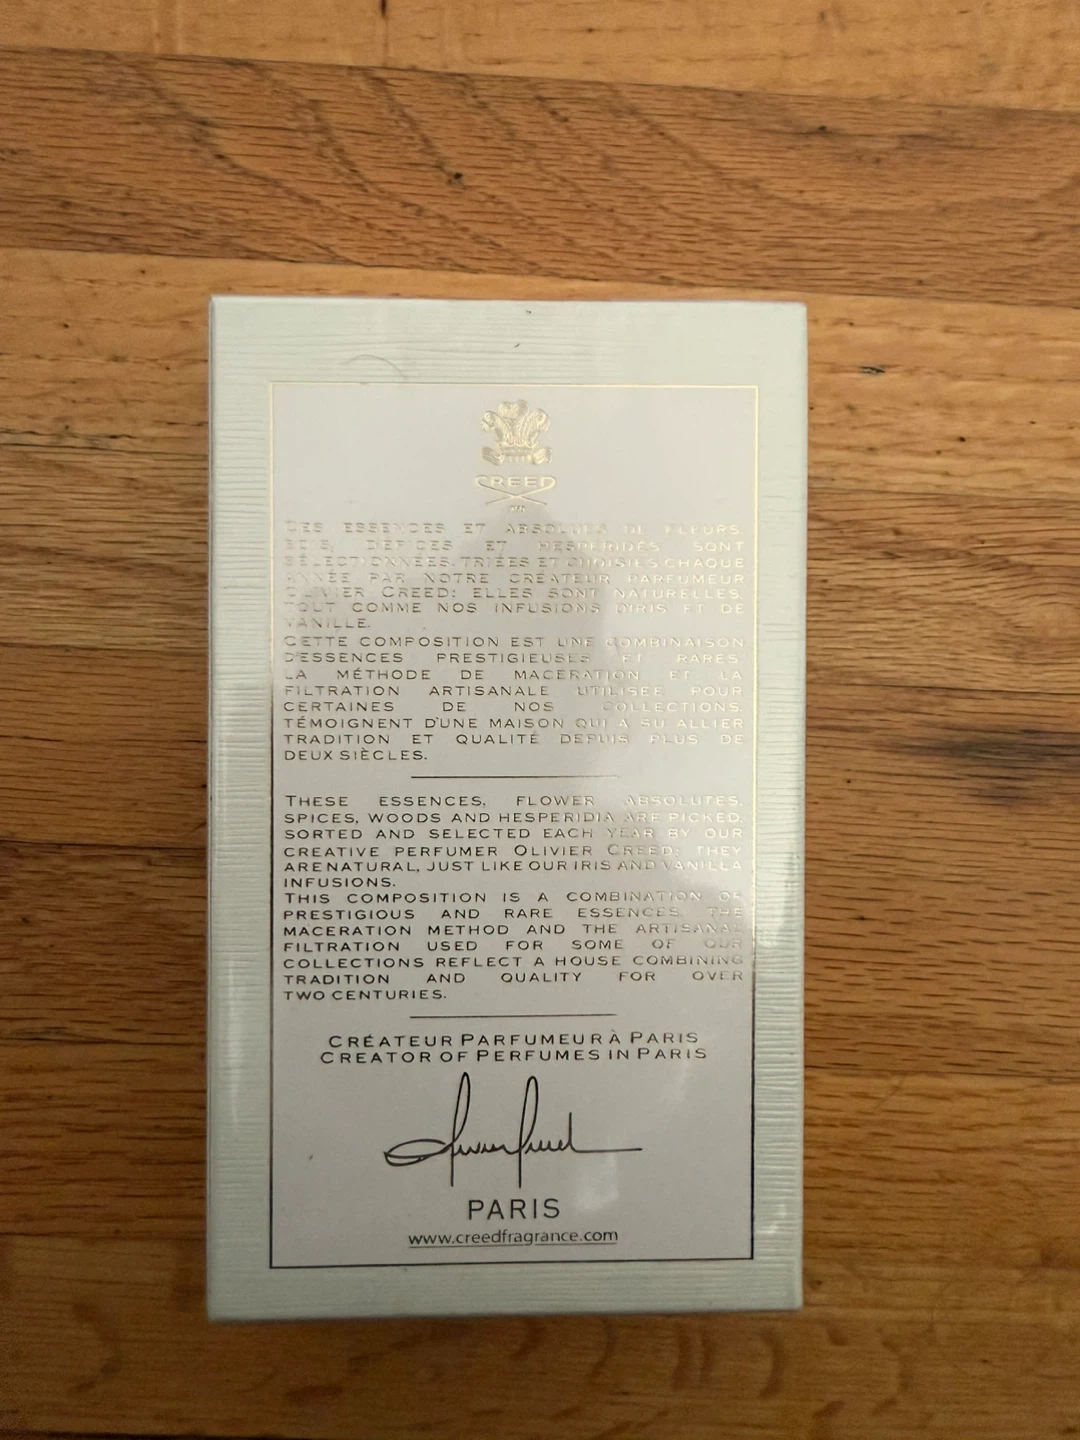 CREED
DES ESSENCES ET ABSOLUES DE FLEURS,
BOIS, D'ÉPICES ET HESPÉRIDÉS SONT
SÉLECTIONNÉES, TRIÉES ET CHOISIES CHAQUE
ANNÉE PAR NOTRE CRÉATEUR PARFUMEUR
OLIVIER CREED: ELLES SONT NATURELLES,
TOUT COMME NOS INFUSIONS D'IRIS ET DE
VANILLE.
CETTE COMPOSITION EST UNE COMBINAISON
D'ESSENCES PRESTIGIEUSES ET RARES.
LA MÉTHODE DE MACERATION ET LA
FILTRATION ARTISANALE UTILISÉE POUR
CERTAINES DE NOS COLLECTIONS,
TÉMOIGNENT D'UNE MAISON QUI A SU ALLIER
TRADITION ET QUALITÉ DEPUIS PLUS DE
DEUX SIÈCLES.
THESE ESSENCES, FLOWER ABSOLUTES,
SPICES, WOODS AND HESPERIDIA ARE PICKED,
SORTED AND SELECTED EACH YEAR BY OUR
CREATIVE PERFUMER OLIVIER CREED: THEY
ARENATURAL, JUST LIKE OUR IRIS AND VANILLA
INFUSIONS.
THIS COMPOSITION IS A COMBINATION OF
PRESTIGIOUS AND RARE ESSENCES. THE
MACERATION METHOD AND THE ARTISANAL
FILTRATION USED FOR SOME OF OUR
COLLECTIONS REFLECT A HOUSE COMBINING
TRADITION AND QUALITY FOR OVER
TWO CENTURIES.
CRÉATEUR PARFUMEUR À PARIS
CREATOR OF PERFUMES IN PARIS
Olivier Creed
PARIS
www.creedfragrance.com